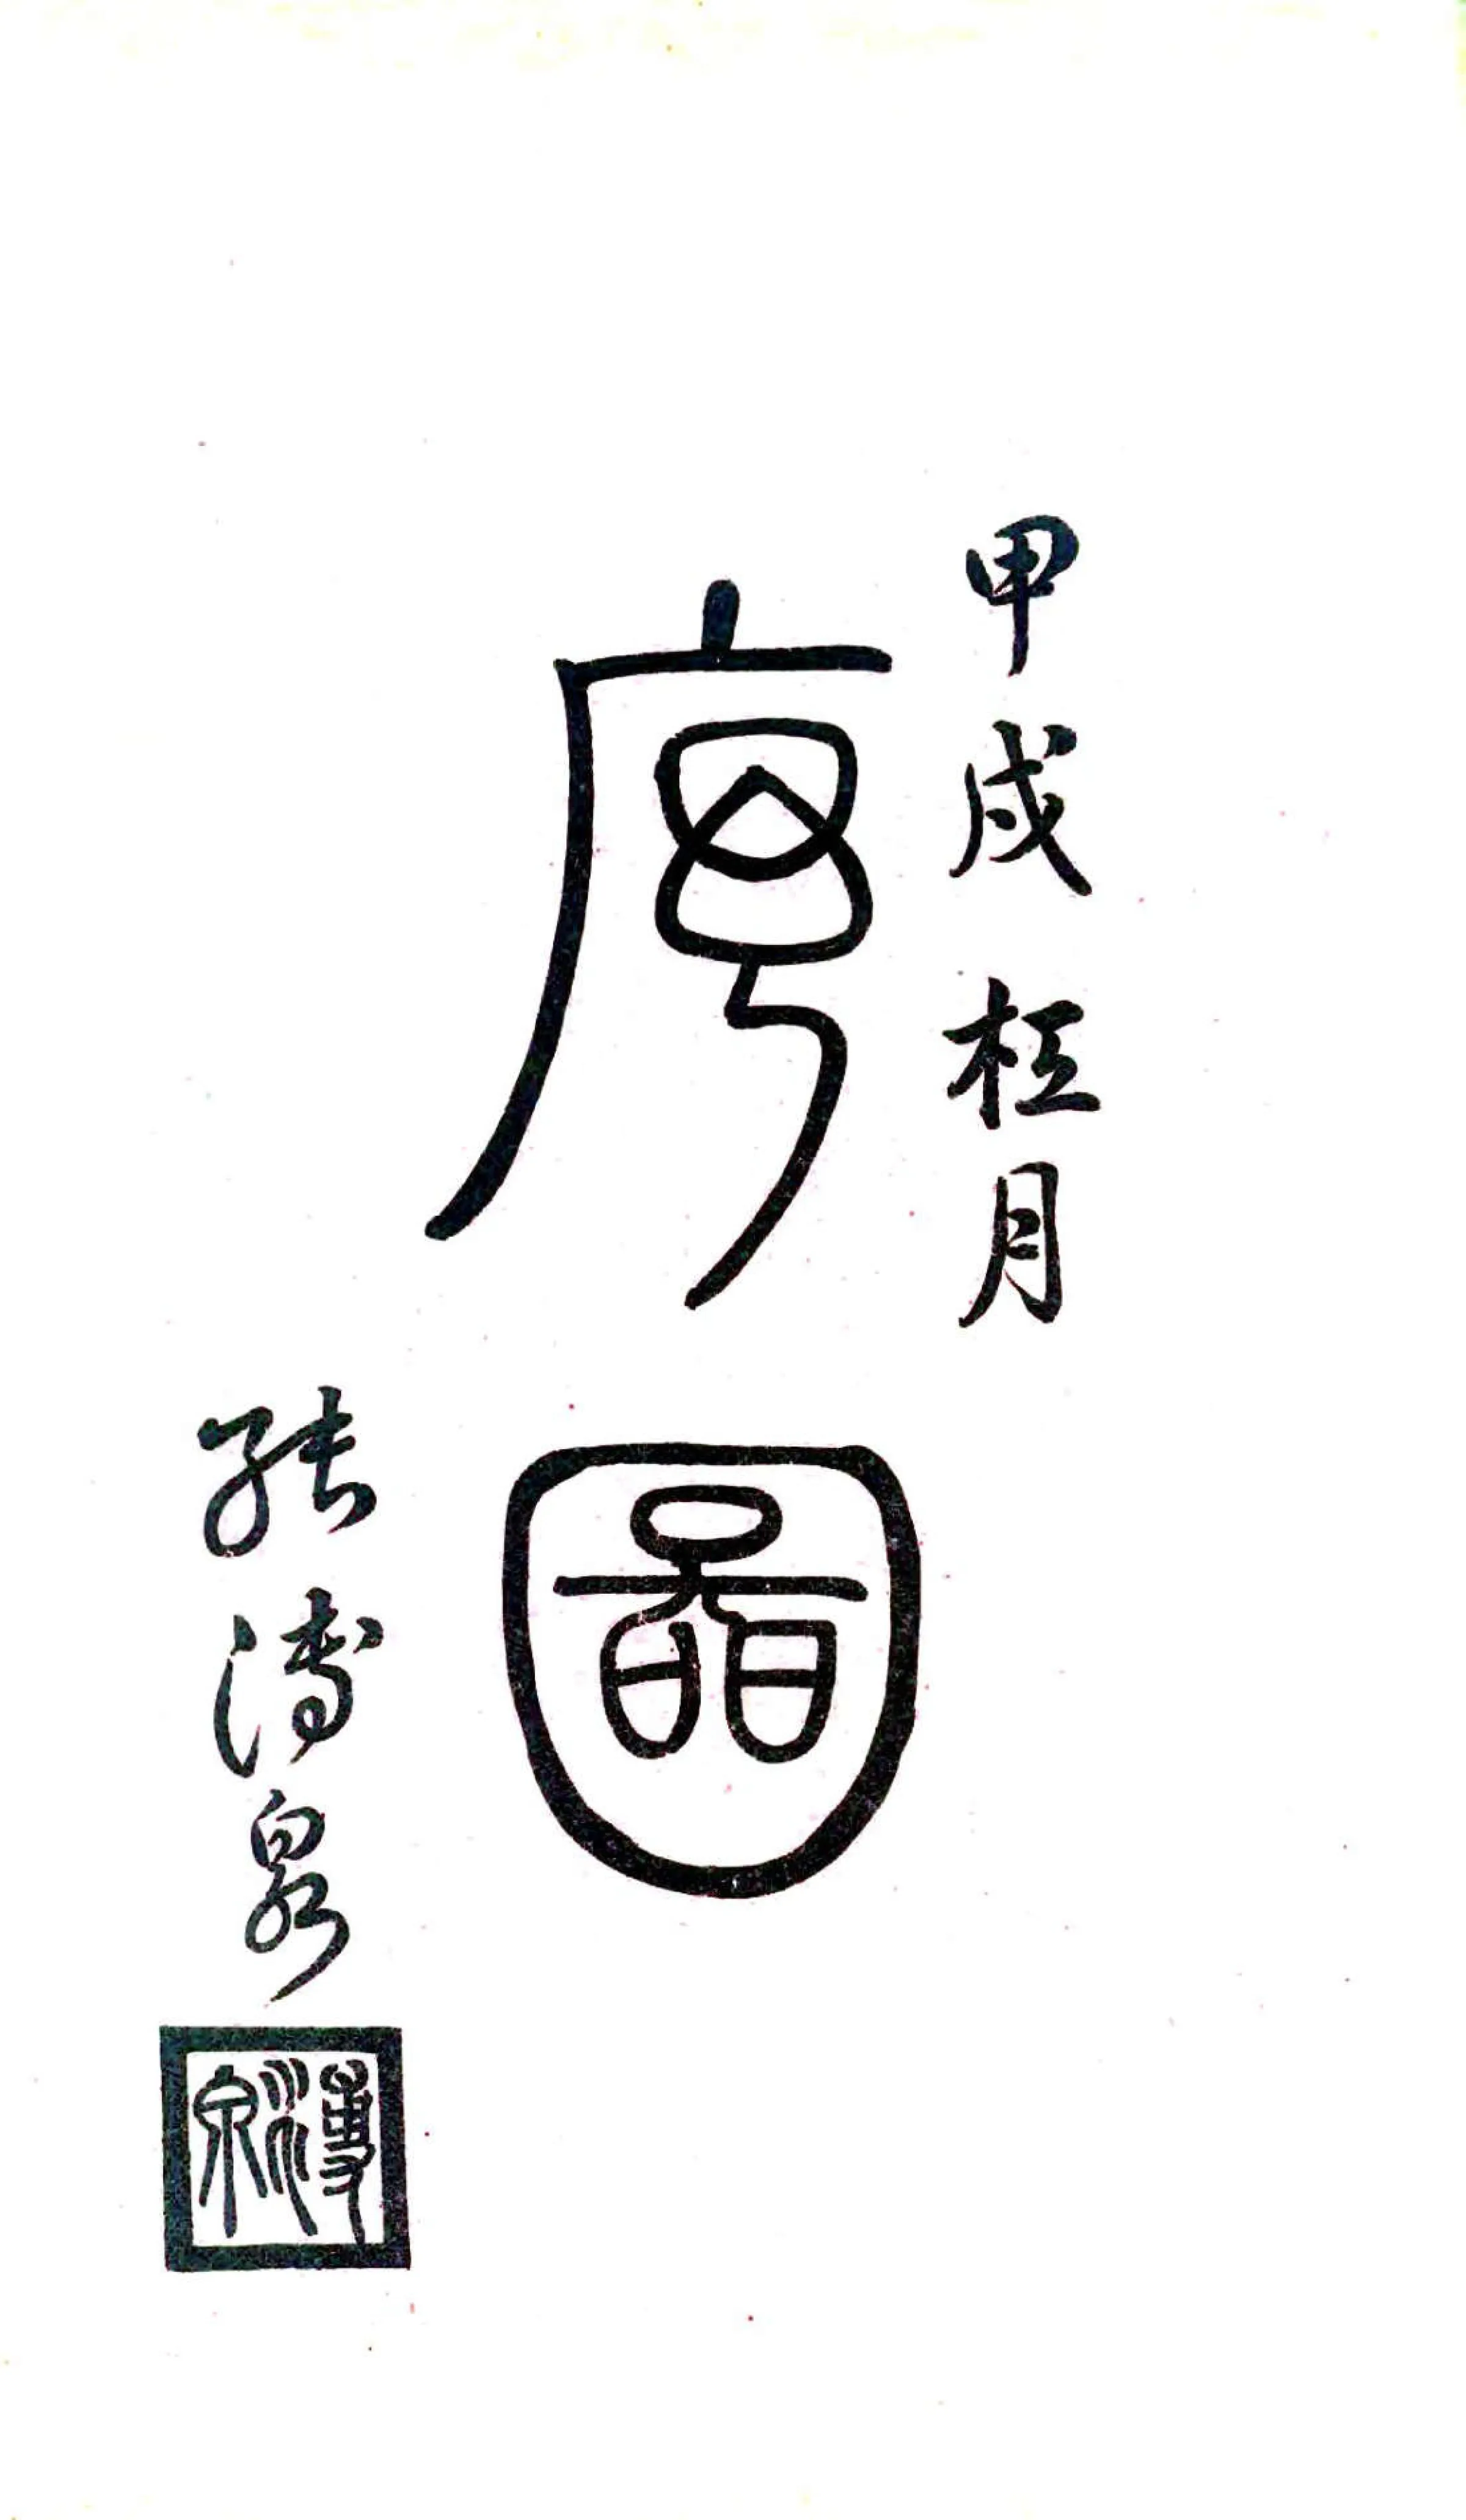 甲戌桂月
序圖
張溥泉
溥泉